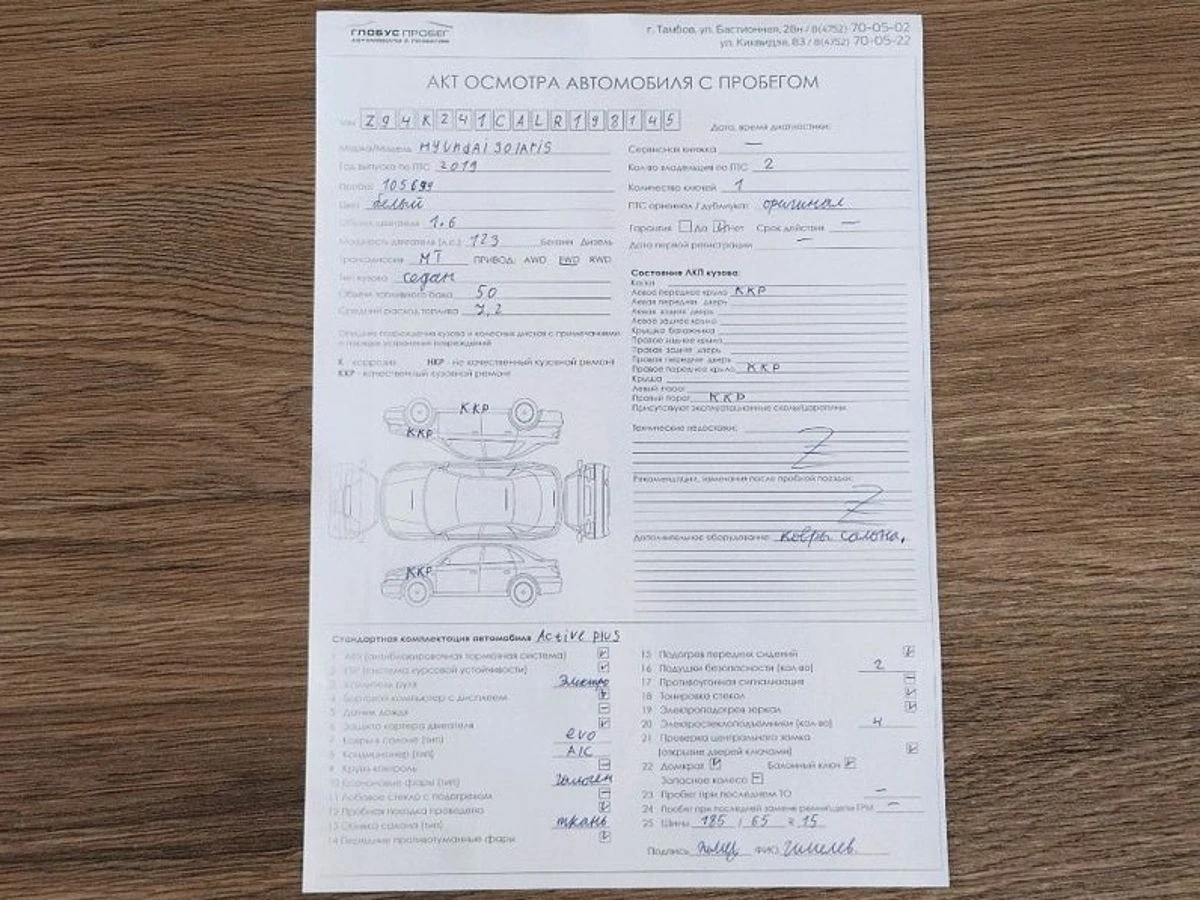 ГЛОБУС ПРОБЕГ
АВТОМОБИЛИ С ПРОБЕГОМ
г. Тамбов, ул. Бастионная, 28н / 8(4752) 70-05-02
ул. Киквидзе, 83 / 8(4752) 70-05-22
АКТ ОСМОТРА АВТОМОБИЛЯ С ПРОБЕГОМ
VIN Z94K241CALR198145
Дата, время диагностики:
Марка/Модель HYUNDAI SOLARIS
Год выпуска по ПТС 2019
Пробег 105694
Цвет белый
Объем двигателя 1.6
Мощность двигателя (л.с.) 123 Бензин Дизель
Трансмиссия МТ ПРИВОД: AWD FWD RWD
Тип кузова седан
Объем топливного бака 50
Средний расход топлива 7,2
Сервисная книжка —
Кол-во владельцев по ПТС 2
Количество ключей 1
ПТС оригинал / дубликат оригинал
Гарантия Да Нет Срок действия —
Дата первой регистрации —
Описание повреждения кузова и колесных дисков с примечаниями
о порядке устранения повреждений
К - коррозия НКР - не качественный кузовной ремонт
ККР - качественный кузовной ремонт
ККР
ККР
ККР
Состояние ЛКП кузова:
Капот
Левое переднее крыло ККР
Левая передняя дверь
Левая задняя дверь
Левое заднее крыло
Крышка багажника
Правое заднее крыло
Правая задняя дверь
Правая передняя дверь
Правое переднее крыло ККР
Крыша
Левый порог
Правый порог ККР
Присутствуют эксплуатационные сколы/царапины
Технические недостатки:
Z
Рекомендации, замечания после пробной поездки:
Z
Дополнительное оборудование ковры салона.
Стандартная комплектация автомобиля Active plus
1 АБС (антиблокировочная тормозная система)
2 ESP (система курсовой устойчивости)
3 Усилитель руля Электро
4 Бортовой компьютер с дисплеем
5 Датчик дождя
6 Защита картера двигателя
7 Ковры в салоне (тип) evo
8 Кондиционер (тип) A/C
9 Круиз-контроль
10 Ксеноновые фары (тип) галоген
11 Лобовое стекло с подогревом
12 Пробная поездка проведена
13 Обивка салона (тип) ткань
14 Передние противотуманные фары
15 Подогрев передних сидений
16 Подушки безопасности (кол-во) 2
17 Противоугонная сигнализация
18 Тонировка стекол
19 Электроподогрев зеркал
20 Электростеклоподъемники (кол-во) 4
21 Проверка центрального замка
(открытие дверей ключами)
22 Домкрат Балонный ключ
Запасное колесо
23 Пробег при последнем ТО —
24 Пробег при последней замене ремня/цепи ГРМ —
25 Шины 185 / 65 R 15
Подпись ФИО